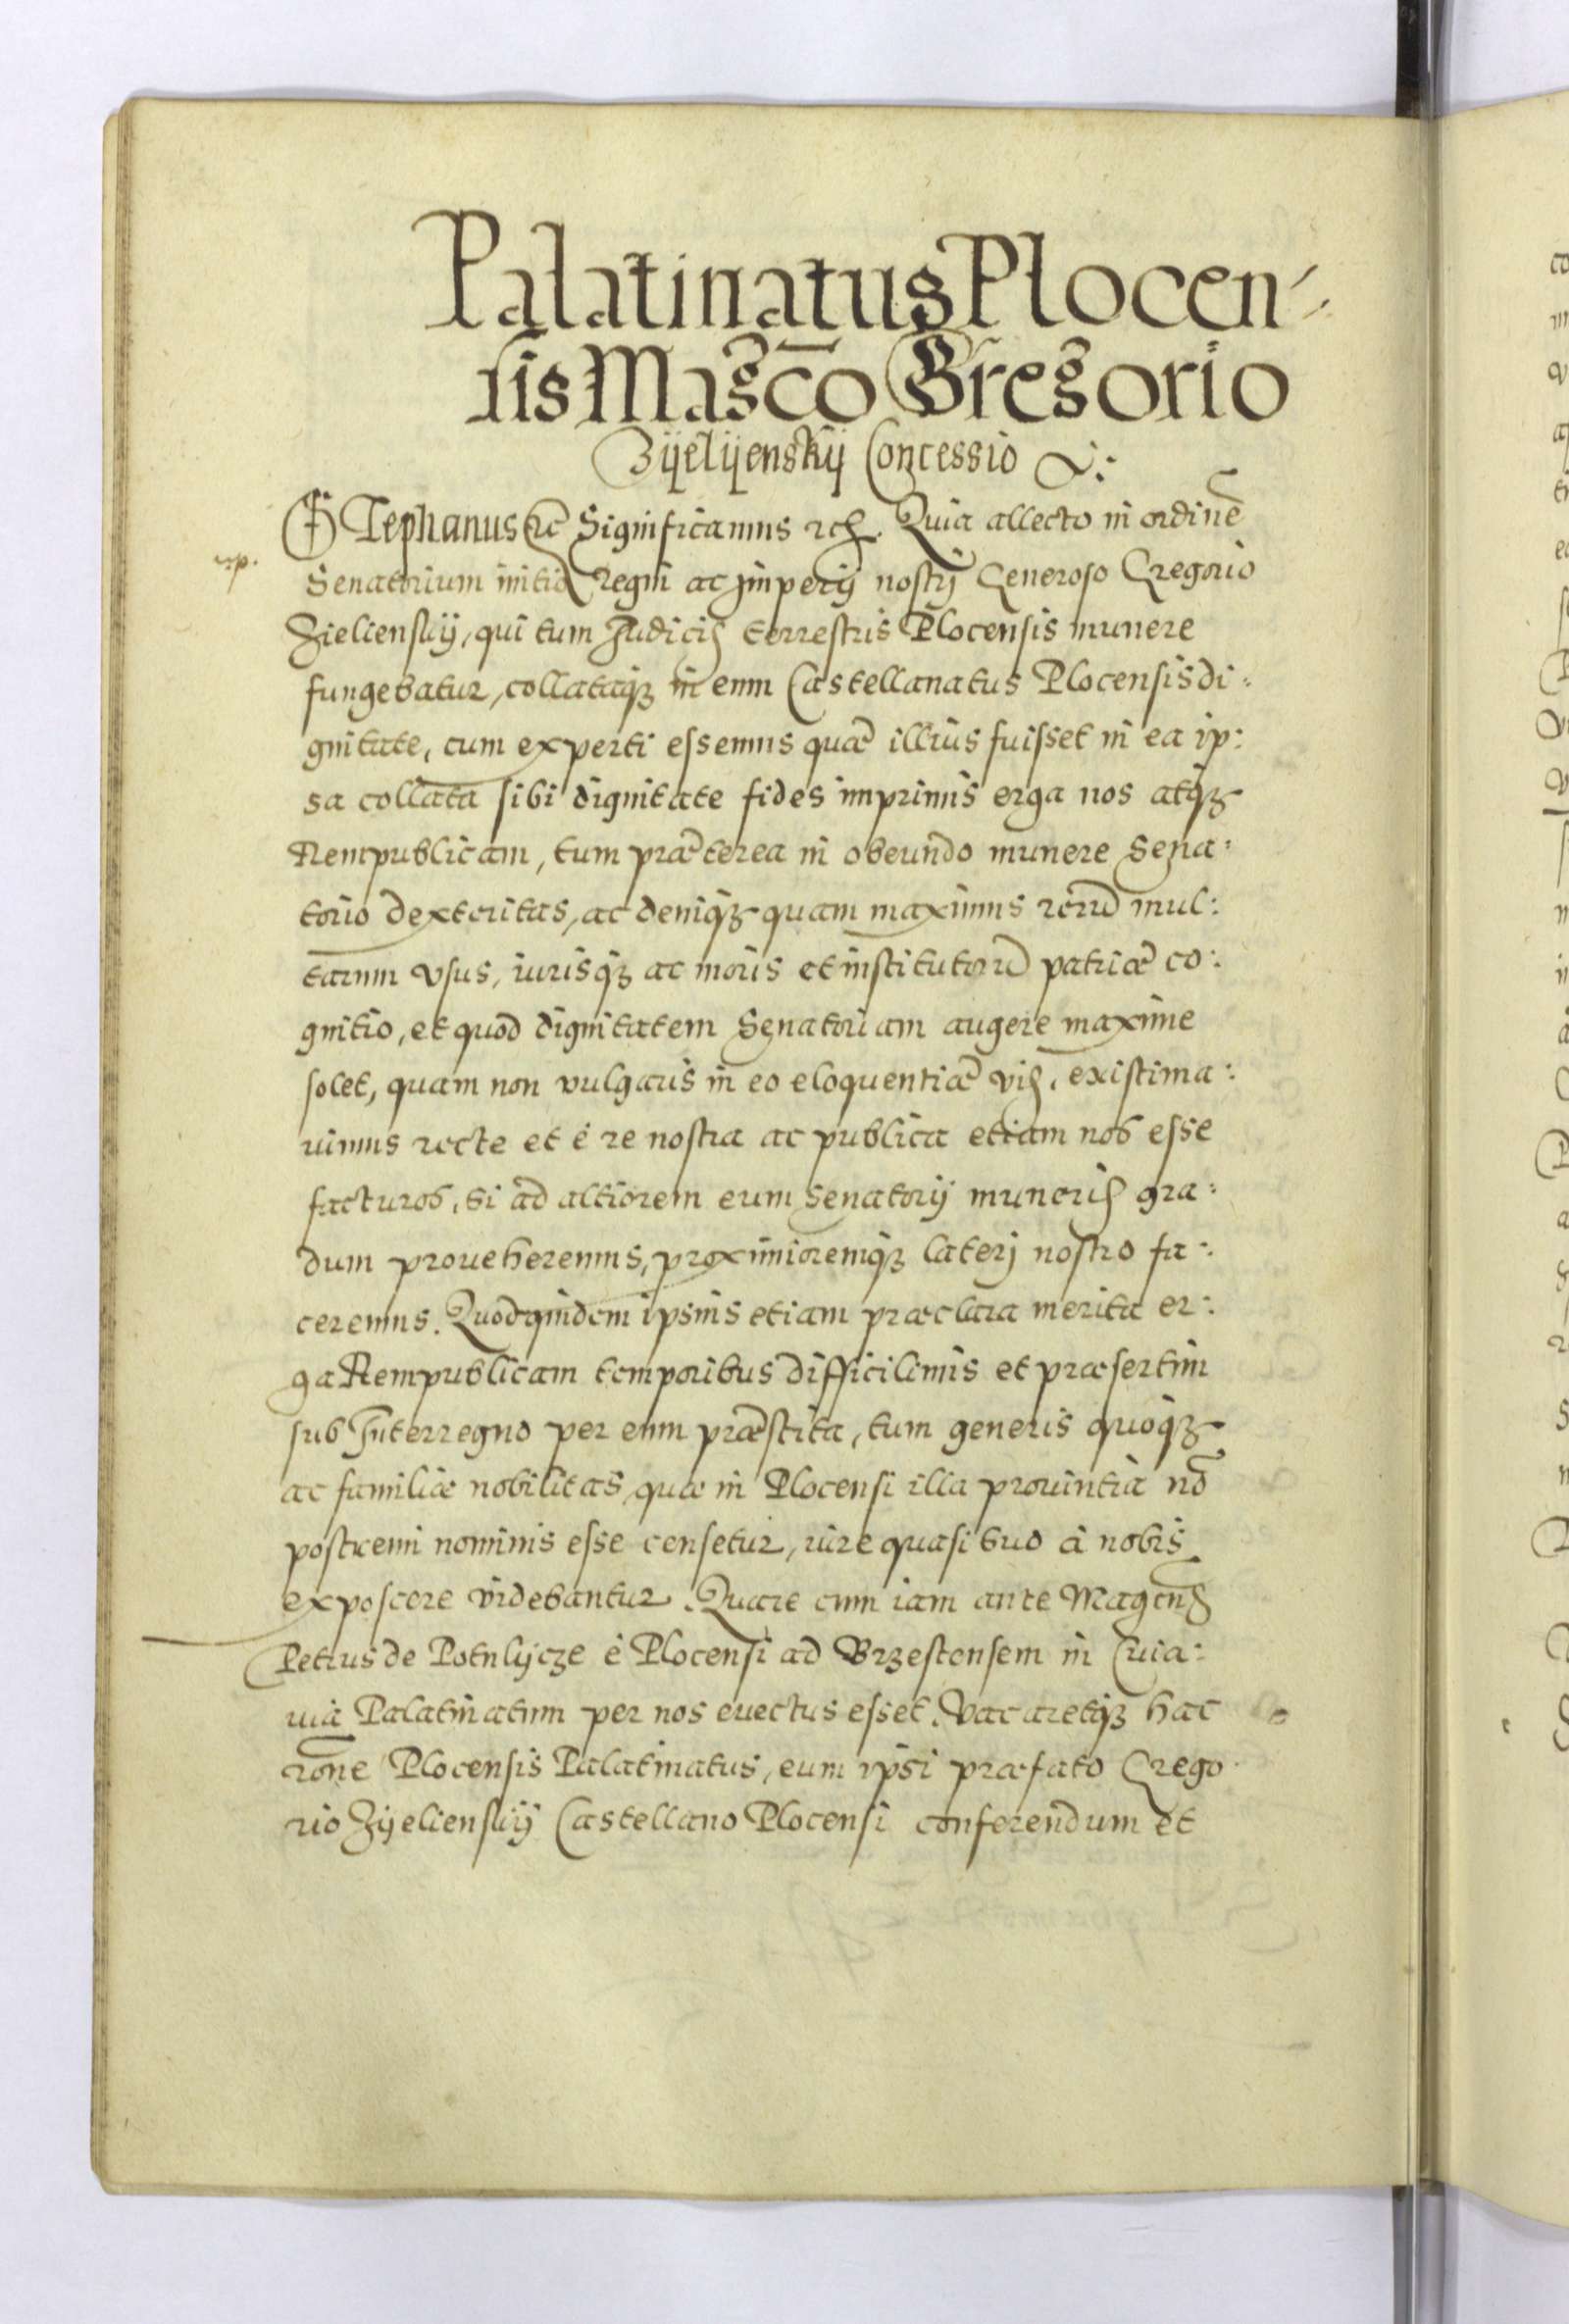 Palatinatus Plocen-
sis Magco Gregorio
Zÿelÿenskÿ Concessio &:
Stephanus etc Significamus etc. Quia allecto in ordinē
Senatorium initio regni ac imperij nostrj Generoso Gregorio
Zielienskÿ, qui tum Judicis terrestris Plocensis munere
fungebatur, collataqꝫ in eum Castellanatus Plocensis di:
gnitate, cum experti essemus quæ illius fuisset in ea ip:
sa collata sibi dignitate fides imprimis erga nos atqꝫ
Rempublicam, tum præterea in obeundo munere Sena:
torio dexteritas, ac deniqꝫ quam maximus rerū mul:
tarum vsus, iurisqꝫ ac moris et institutorū patriæ co:
gnitio, et quod dignitatem Senatoriam augere maxime
solet, quam non vulgaris in eo eloquentiæ vis, existima:
uimus recte et è re nostra ac publica etiam nos esse
facturos, si ad altiorem eum Senatorij muneris gra:
dum proueheremus, proximioremqꝫ laterj nostro fa:
ceremus. Quod quidem ipsius etiam præclara merita er:
ga Rempublicam temporibus difficilimis et præsertim
sub Interregno per eum præstita, tum generis quoqꝫ
ac familiæ nobilitas, quæ in Plocensi illa prouintia nō
postremi nominis esse censetur, iure quasi suo à nobis
exposcere videbantur. Quare cum iam ante Magcus
Petrus de Potulÿcze è Plocensi ad Brzestensem in Cuia:
uia Palatinatum per nos euectus esset. Vacaretqꝫ hac
rōne Plocensis Palatinatus, eum ipsi præfato Grego
rio Zÿelienskÿ Castellano Plocensi conferendum et